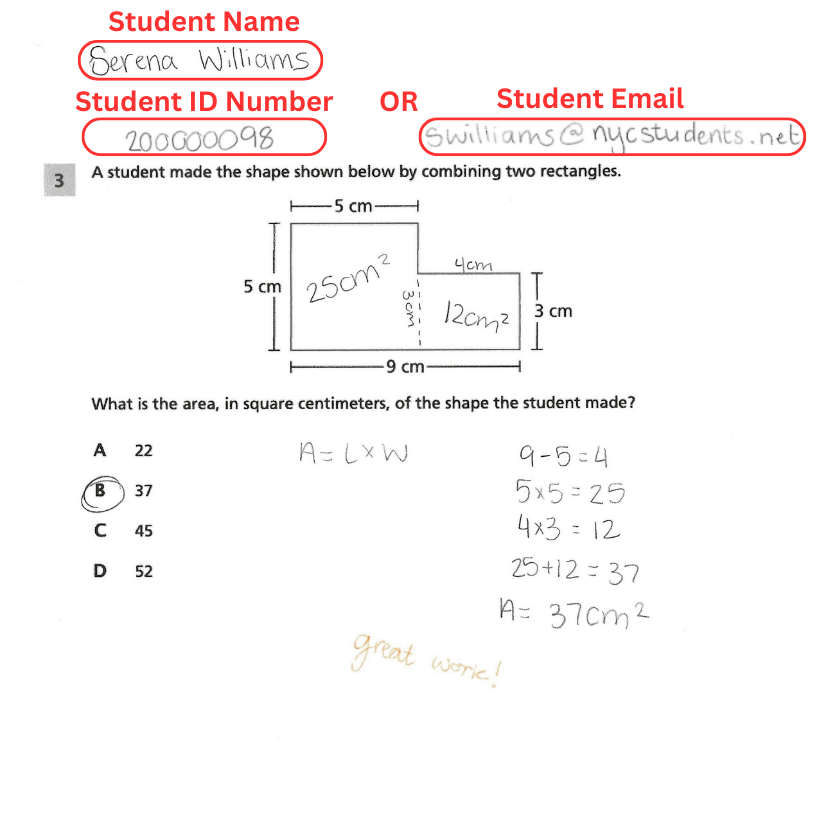 Student Name
Serena Williams
Student ID Number OR Student Email
200000098 swilliams@nycstudents.net
3 A student made the shape shown below by combining two rectangles.
5 cm
4cm
5 cm 25cm² 3cm 12cm² 3 cm
9 cm
What is the area, in square centimeters, of the shape the student made?
A 22 A = L x W 9-5=4
B 37 5x5=25
C 45 4x3 = 12
D 52 25+12=37
A= 37cm²
great work!